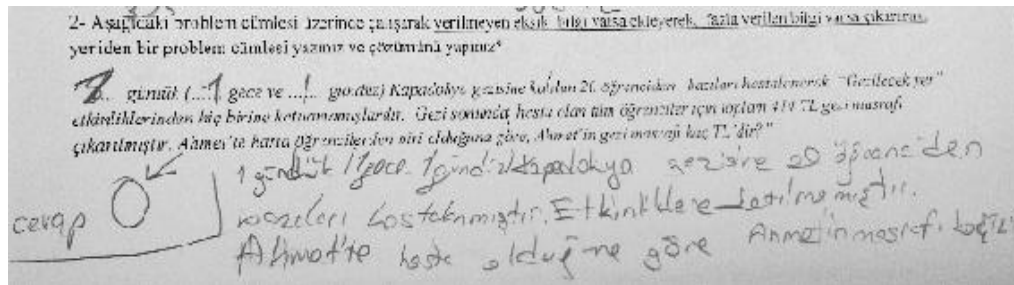 2- Aşağıdaki problem cümlesi üzerinde çalışarak verilmeyen eksik bilgi varsa ekleyerek, fazla verilen bilgi varsa çıkararak
yeniden bir problem cümlesi yazınız ve çözümünü yapınız"
günlük (...1 gece ve ...1.. gündüz) Kapadokya gezisine katılan 20 öğrenciden bazıları hastalanarak "Gezilecek yer"
etkinliklerinden hiç birine katılmamışlardır. Gezi sonunda, hasta olan tüm öğrenciler için toplam 414 TL gezi masrafı
çıkarılmıştır. Ahmet'te hasta öğrencilerden biri olduğuna göre, Ahmet'in gezi masrafı kaç TL'dir?"
1 günlük 1 gece 1 gündüz Kapadokya gezisine 20 öğrenciden
bazıları hastalanmıştır. Etkinliklere katılmamıştır.
Ahmet'te hasta olduğuna göre Ahmet'in masrafı kaç TL
cevap 0